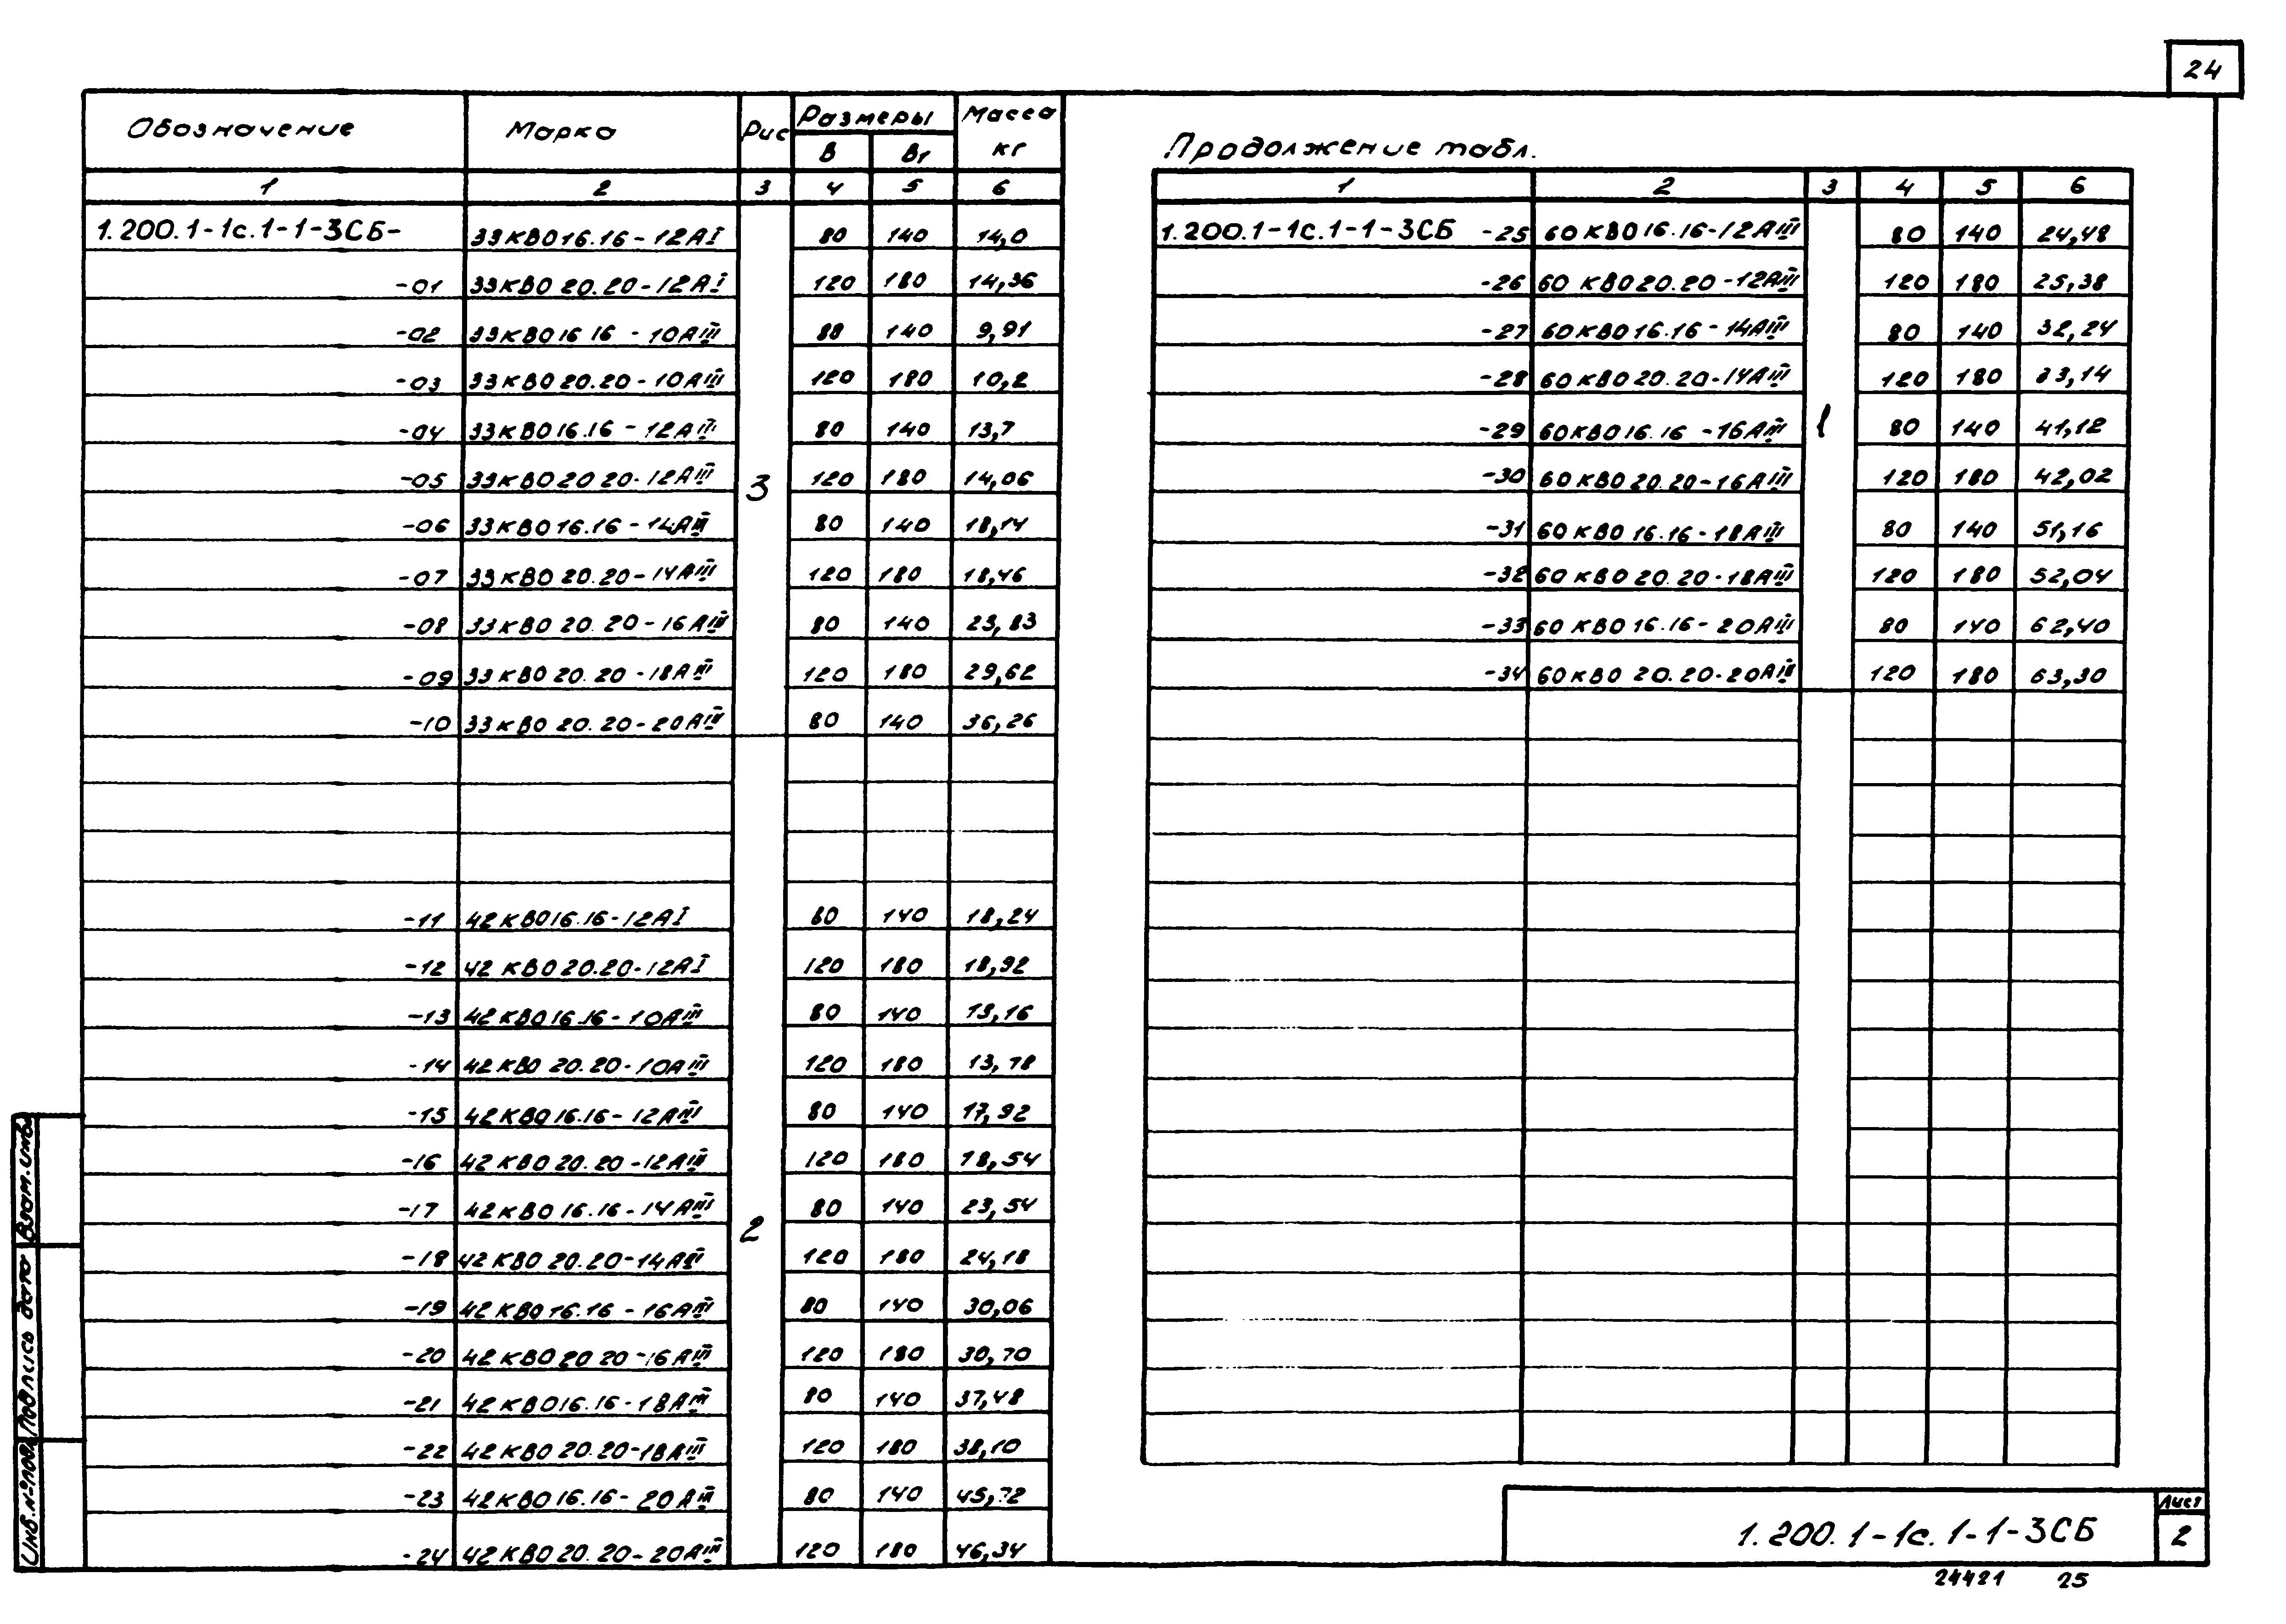 24
Обозначение Марка Рис Размеры Масса кг
В В1
1 2 3 4 5 6
1.200.1-1с.1-1-3СБ- 33КВО16.16-12АI 80 140 14,0
-01 33КВО20.20-12АI 120 180 14,36
-02 33КВО16 16-10АIII 80 140 9,91
-03 33КВО20.20-10АIII 120 180 10,2
-04 33КВО16.16-12АIII 80 140 13,7
-05 33КВО20 20-12АIII 3 120 180 14,06
-06 33КВО16.16-14АIII 80 140 18,14
-07 33КВО20.20-14АIII 120 180 18,46
-08 33КВО20.20-16АIII 80 140 23,83
-09 33КВО20.20-18АIII 120 180 29,62
-10 33КВО20.20-20АIII 80 140 36,26
-11 42КВО16.16-12АI 80 140 18,24
-12 42КВО20.20-12АI 120 180 18,92
-13 42КВО16.16-10АIII 80 140 13,16
-14 42КВО20.20-10АIII 120 180 13,78
-15 42КВО16.16-12АIII 80 140 17,92
-16 42КВО20.20-12АIII 120 180 18,54
-17 42КВО16.16-14АIII 2 80 140 23,54
-18 42КВО20.20-14АIII 120 180 24,18
-19 42КВО16.16-16АIII 80 140 30,06
-20 42КВО20 20-16АIII 120 180 30,70
-21 42КВО16.16-18АIII 80 140 37,48
-22 42КВО20.20-18АIII 120 180 38,10
-23 42КВО16.16-20АIII 80 140 45,72
-24 42КВО20.20-20АIII 120 180 46,34
Продолжение табл.
1 2 3 4 5 6
1.200.1-1с.1-1-3СБ -25 60КВО16.16-12АIII 80 140 24,48
-26 60КВО20.20-12АIII 120 180 25,38
-27 60КВО16.16-14АIII 80 140 32,24
-28 60КВО20.20-14АIII 120 180 33,14
-29 60КВО16.16-16АIII 1 80 140 41,12
-30 60КВО20.20-16АIII 120 180 42,02
-31 60КВО16.16-18АIII 80 140 51,16
-32 60КВО20.20-18АIII 120 180 52,04
-33 60КВО16.16-20АIII 80 140 62,40
-34 60КВО20.20-20АIII 120 180 63,30
Инв.№подл. Подпись дата Взам.инв
1.200.1-1с.1-1-3СБ
Лист
2
24421 25